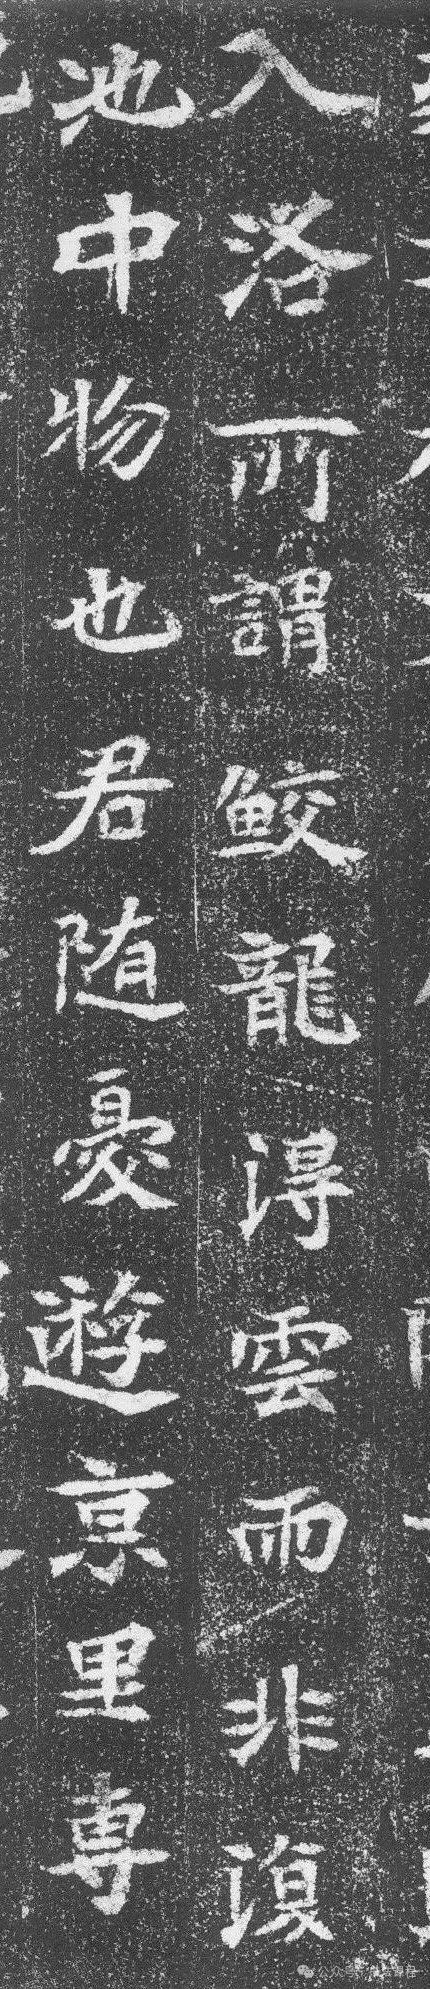 入洛所謂鮫龍得雲雨非復
池中物也君随憂遊京里専